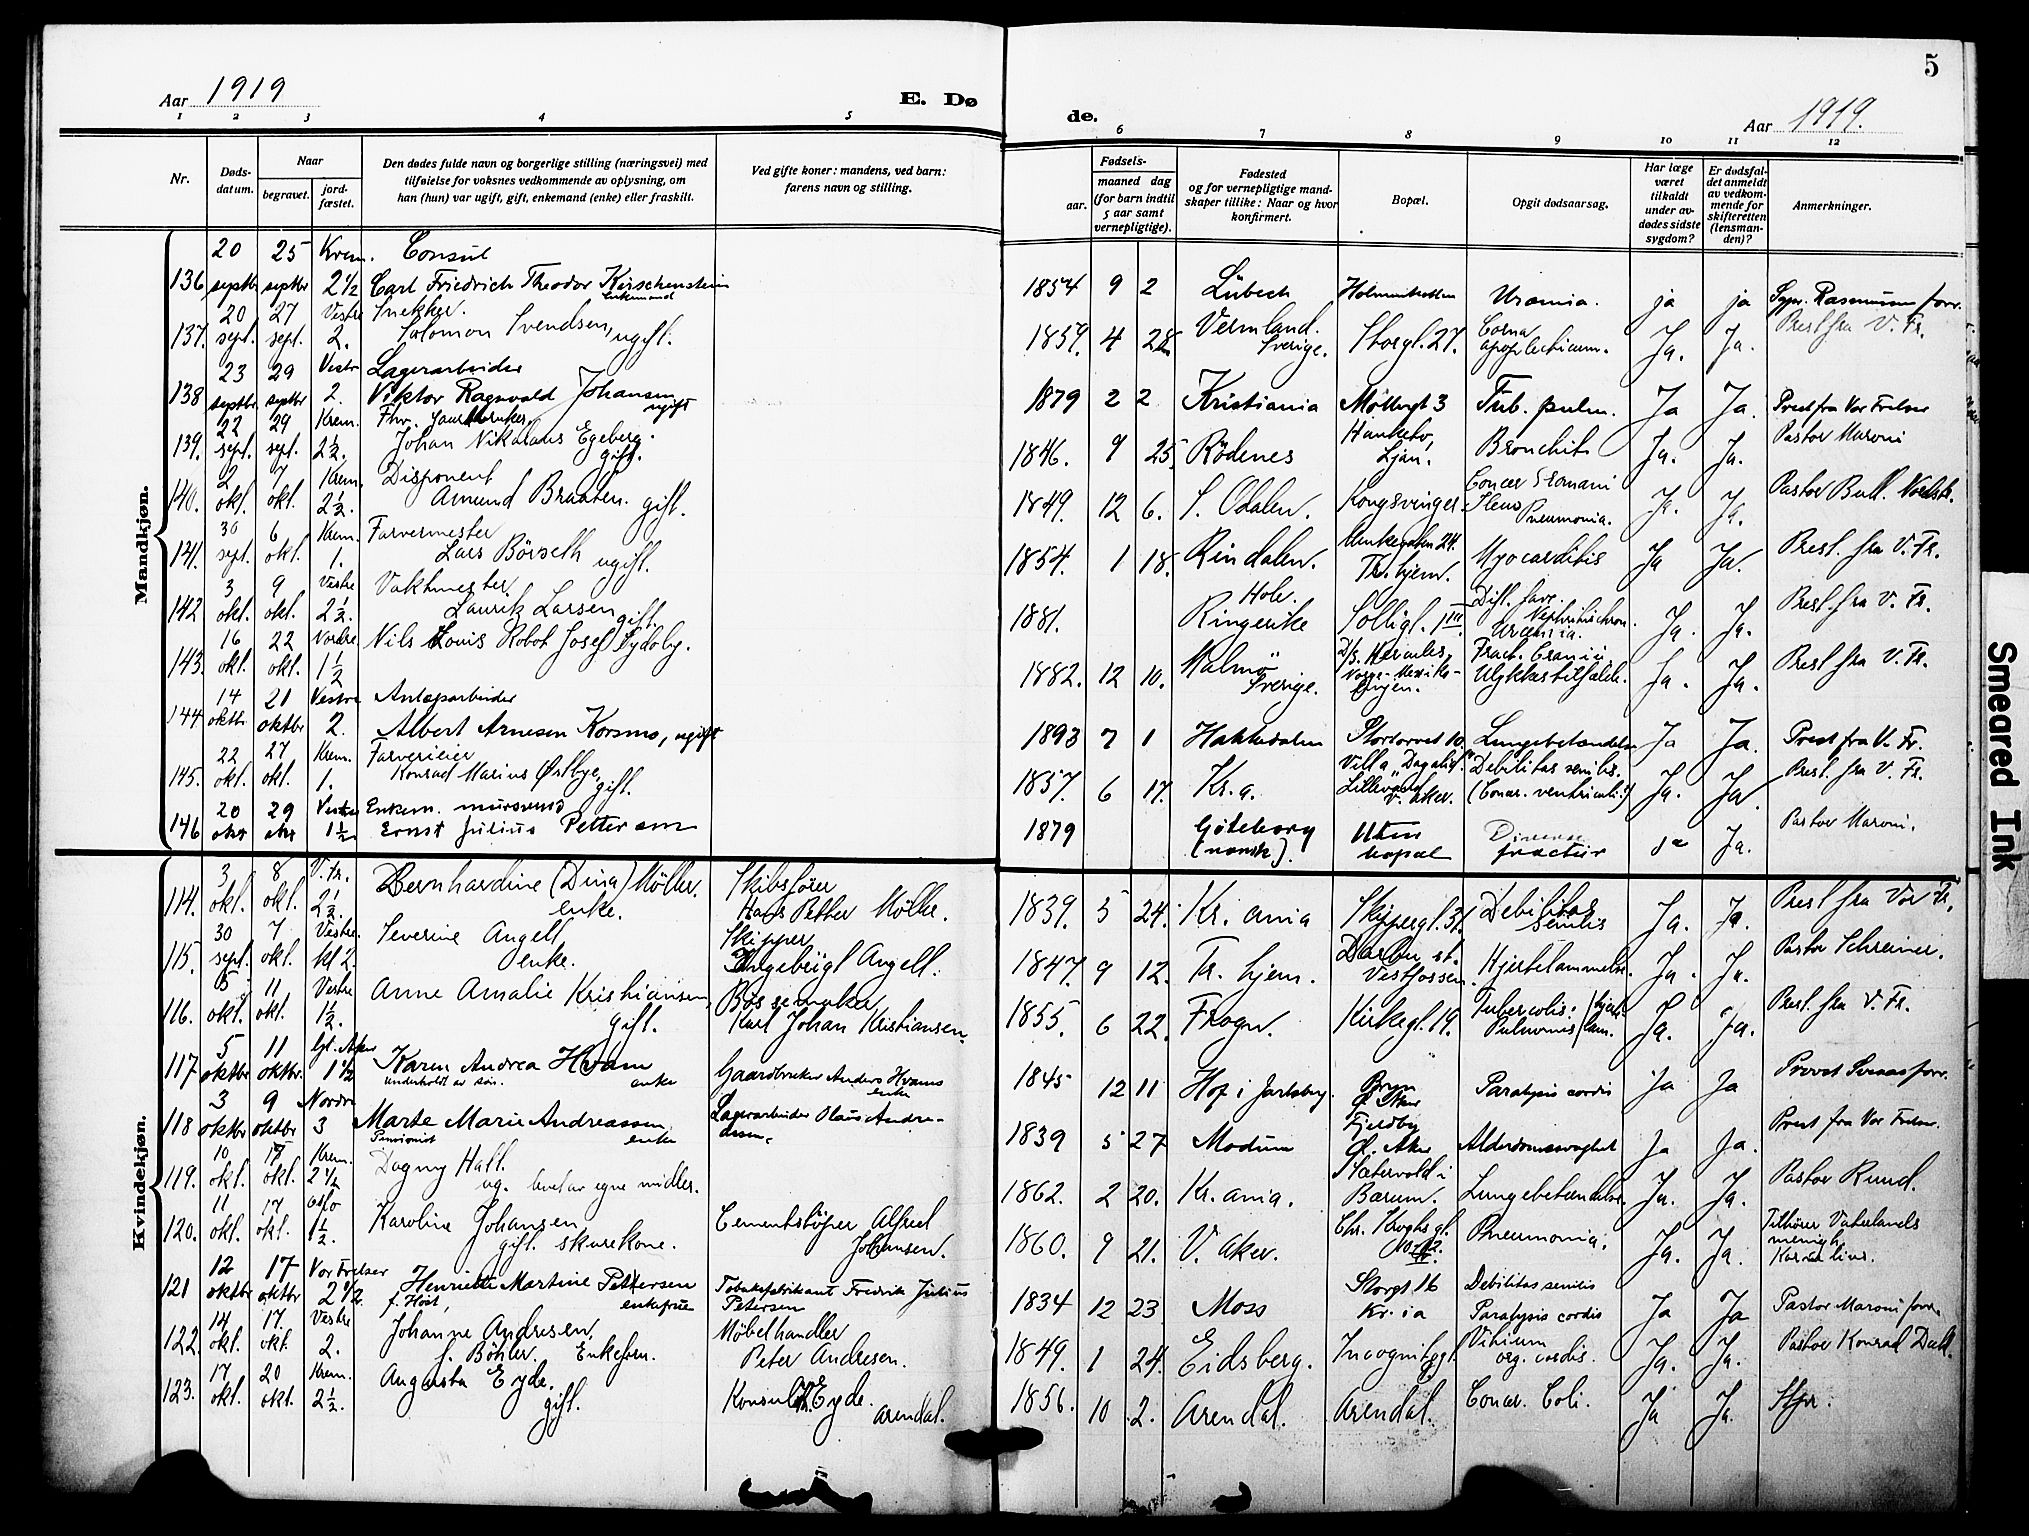 5
Aar 1919
E. Dø
de.
Aar 1919.
1 2 3 4 5 6 7 8 9 10 11 12
Nr.
Døds-datum.
Naar
begravet.
jord-fæstet.
Den dødes fulde navn og borgerlige stilling (næringsvei) med
tilføielse for voksnes vedkommende av oplysning, om
han (hun) var ugift, gift, enkemand (enke) eller fraskilt.
Ved gifte koner: mandens, ved barn:
farens navn og stilling.
Fødsels-
aar.
maaned dag
(for barn indtil
5 aar samt
vernepligtige).
Fødested
og for vernepligtige mand-
skaper tillike: Naar og hvor
konfirmert.
Bopæl.
Opgit dødsaarsag.
Har læge
været
tilkaldt
under av-
dødes sidste
sygdom?
Er dødsfal-
det anmeldt
av vedkom-
mende for
skifteretten
(lensman-
den)?
Anmerkninger.
Mandkjøn.
136 20 septbr 25 septbr Krem. 2 1/2 Consul
Carl Friedrich Theodor Kirschenstein enkemand 1854 9 2 Lübeck Holmenkollen Uræmia. ja ja Sgpr. Rasmussen forr.
137. 20 sept. 27 sept. Vestre 2. Snekker.
Salomon Svendsen, ugift. 1857. 4 28. Vermland. Sverige. Storgt. 27. Coma apoplecticum. Ja. Ja. Prest fra V. Fr.
138 23 septbr. 29 septbr Vestr 2. Lagerarbeider
Viktor Ragnvald Johansen ugift 1879 2 2 Kristiania Møllergt 3 Tub. pulm. Ja Ja. Prest fra Vor Frelser
139. 22 sept. 29 sept. Krem. 2 1/2.
Johan Nikolaus Egeberg. gift. 1846. 9 25. Rødenes Hauketo, Ljan. Bronchit Ja. Ja. Pastor Maroni
140. 2 okt. 7 okt. Krem. 2 1/2. Disponent
Amund Braaten. gift. 1849. 12 6. S. Odalen. Kongsvinger Pneumonia. Ja. Ja. Pastor Bull.
141. 30 sept. 6 okt. Krem. 1. Farvermester
Lars Børseth ugift. 1854. 1 18. Rindalen. Munkegaten 24. Tr. hjem. Myocarditis Ja Ja. Prest fra V. Fr.
142 3 okt. 9 okt. Vestre 2 1/2. Vaktmester
Lauritz Larsen gift. 1881. Hole. Ringerike Solligt. 1 III. Nephritis chron. Uræmia. Ja. Ja. Prest. fra V. Fr.
143. 16 okt. 22 okt. Nordre 1 1/2 Nils Louis Robot Josef Lydoby. 1882. 12 10. Malmø Sverige. D/S. Hercules, Norge-Mexiko-linjen. Fract. Cranii. Ulykkestilfælde. Ja. Ja. Prest fra V. Fr.
144 14 oktbr. 21 oktbr Vestre 2. Anlægsarbeider
Albert Arnesen Korsmo, ugift 1893 7 1 Hakkedalen Stortorvet 10 Lungebetændelse Ja Ja. Prest fra V. Fr.
145. 22 okt. 27 okt. Krem. 1. Farverieier
Konrad Marius Østbye, gift. 1857. 6 17. Kr.a. Villa "Dagalid" Lillevand V. Aker. Debilitas senilis. (Cancr. ventriculi.?) Ja. Ja. Prest. fra V. Fr.
146 20 29 Vestre 1 1/2 Enkem. mursvend
Ernst Julius Pettersen 1879 Göteborg (norsk). Uten bopæl fractur Ja Ja. Pastor Maroni.
Kvindekjøn.
114. 3 okt. 8 okt. V. Fr. 2 1/2. Bernhardine (Dina) Møller. enke. Skibsfører Hans Petter Møller. 1839. 5 24. Kr.ania Skippergt. 31. Debilitas senilis Ja. Ja. Prest fra Vor Fr.
115. 30 sept. 7 okt. Vestre. kl 2. Severine Angell enke. Skipper Ingebrigt Angell. 1847. 9 12. Tr. hjem. Darbu st. Vestfossen. Hjertelammelse. Ja. Ja. Pastor Schreiner.
116. 6 okt. 11 okt. Vestre 1 1/2. Anne Amalie Kristiansen, gift. Bøssemaker Karl Johan Kristiansen. 1855. 6 22. Frogn. Kirkegt. 19. Tuberculosis: Pulmonis / hjertelam. Ja. Ja. Prest. fra V. Fr.
117 5 oktbr 11 oktbr. Gl. Aker 1 1/2 Karen Andrea Hvam
underholdt av søn. enke Gaardbruker Anders Hvams enke 1845 12 11 Hof i Jarlsberg. Bryn Ø. Aker Paralysis cordis Ja Ja Provst
118 3 oktbr 9 oktbr Nordre 3 Marte Marie Andreassen
Pensionist enke Lagerarbeider Olaus Andreassen. 1839 5 27 Modum Fjeldby Ø. Aker Alderdomssvaghet Ja Ja. Prest fra Vor Frelser.
119. 10 okt. 17 okt. Krem. 2 1/2 Dagny Hall.
ug. levet av egne midler. 1862. 2 20. Kr.ania. Slætervold i Bærum. Lungebetændelse. Ja. Ja. Pastor Rund.
120. 11 okt. 17 okt. Oslo 1 1/2. Karoline Johansen
gift. skurekone. Cementstøper Alfred Johansen. 1860. 9 21. V. Aker. Chr. Kroghs gt. Pneumonia. Ja. Ja. Tilhører Vaterlands menigh.
121 12 oktbr 17 oktbr Vor Frelser 2 1/2. Henriette Martine Pettersen
f. Høst, enkefrue Tobaksfabrikant Fredrik Julius Petersen 1834 12 23 Moss Storgt 16 Kr.ia Debilitas senilis Paralysis cordis Ja Ja Pastor Maroni forr.
122. 14 okt. 17. okt. Vestre 2. Johanne Andresen,
f. Bøhler. Enkefru. Møbelhandler Peter Andresen. 1849. 1 24. Eidsberg. Incognitogt. Vitium org. cordis. Ja. Ja. Pastor Konrad Dahl.
123. 17 okt. 20 okt. Krem. 2 1/2. Augusta Eyde. gift. Konsul Eyde. Arendal. 1856. 10 2. Arendal. Arendal. Cancr. Coli. Ja Ja.
Smeared Ink